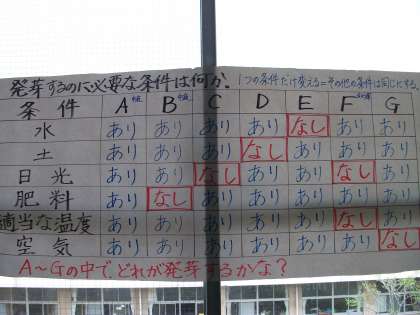 発芽するのに必要な条件は何か! 1つの条件だけ変える=その他の条件は同じにする。
条件 A B C D E F G
水 あり あり あり あり なし あり あり
土 あり あり あり なし あり あり あり
日光 あり あり なし あり あり なし あり
肥料 あり なし あり あり あり あり あり
適当な温度 あり あり あり あり あり なし あり
空気 あり あり あり あり あり あり なし
A～Gの中で、どれが発芽するかな?